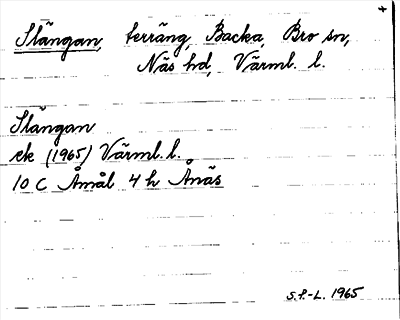 Slängan, terräng, Backa, Bro sn,
Näs hd, Värml. l.
Slängan
ek (1965) Värml. l.
10 C Åmål 4 h Ånäs
S.F.-L. 1965